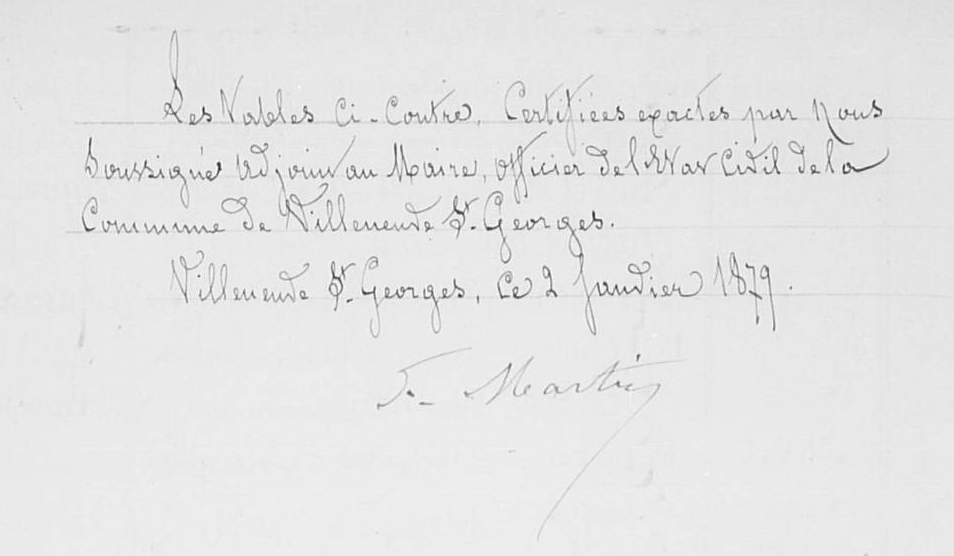 Les Tables Ci-Contre, Certifiées exactes par Nous
Soussigné Adjoint au Maire, officier de l'Etat Civil de la
Commune de Villeneuve St. Georges.
Villeneuve St. Georges, ce 2 Janvier 1879.
F. Martin